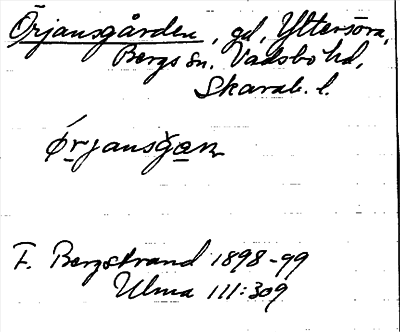 Örjansgården, gd, Yttersöra,
Bergs sn, Vadsbo hd,
Skarab. l.
F. Bergstrand 1898-99
Ulma 111:309